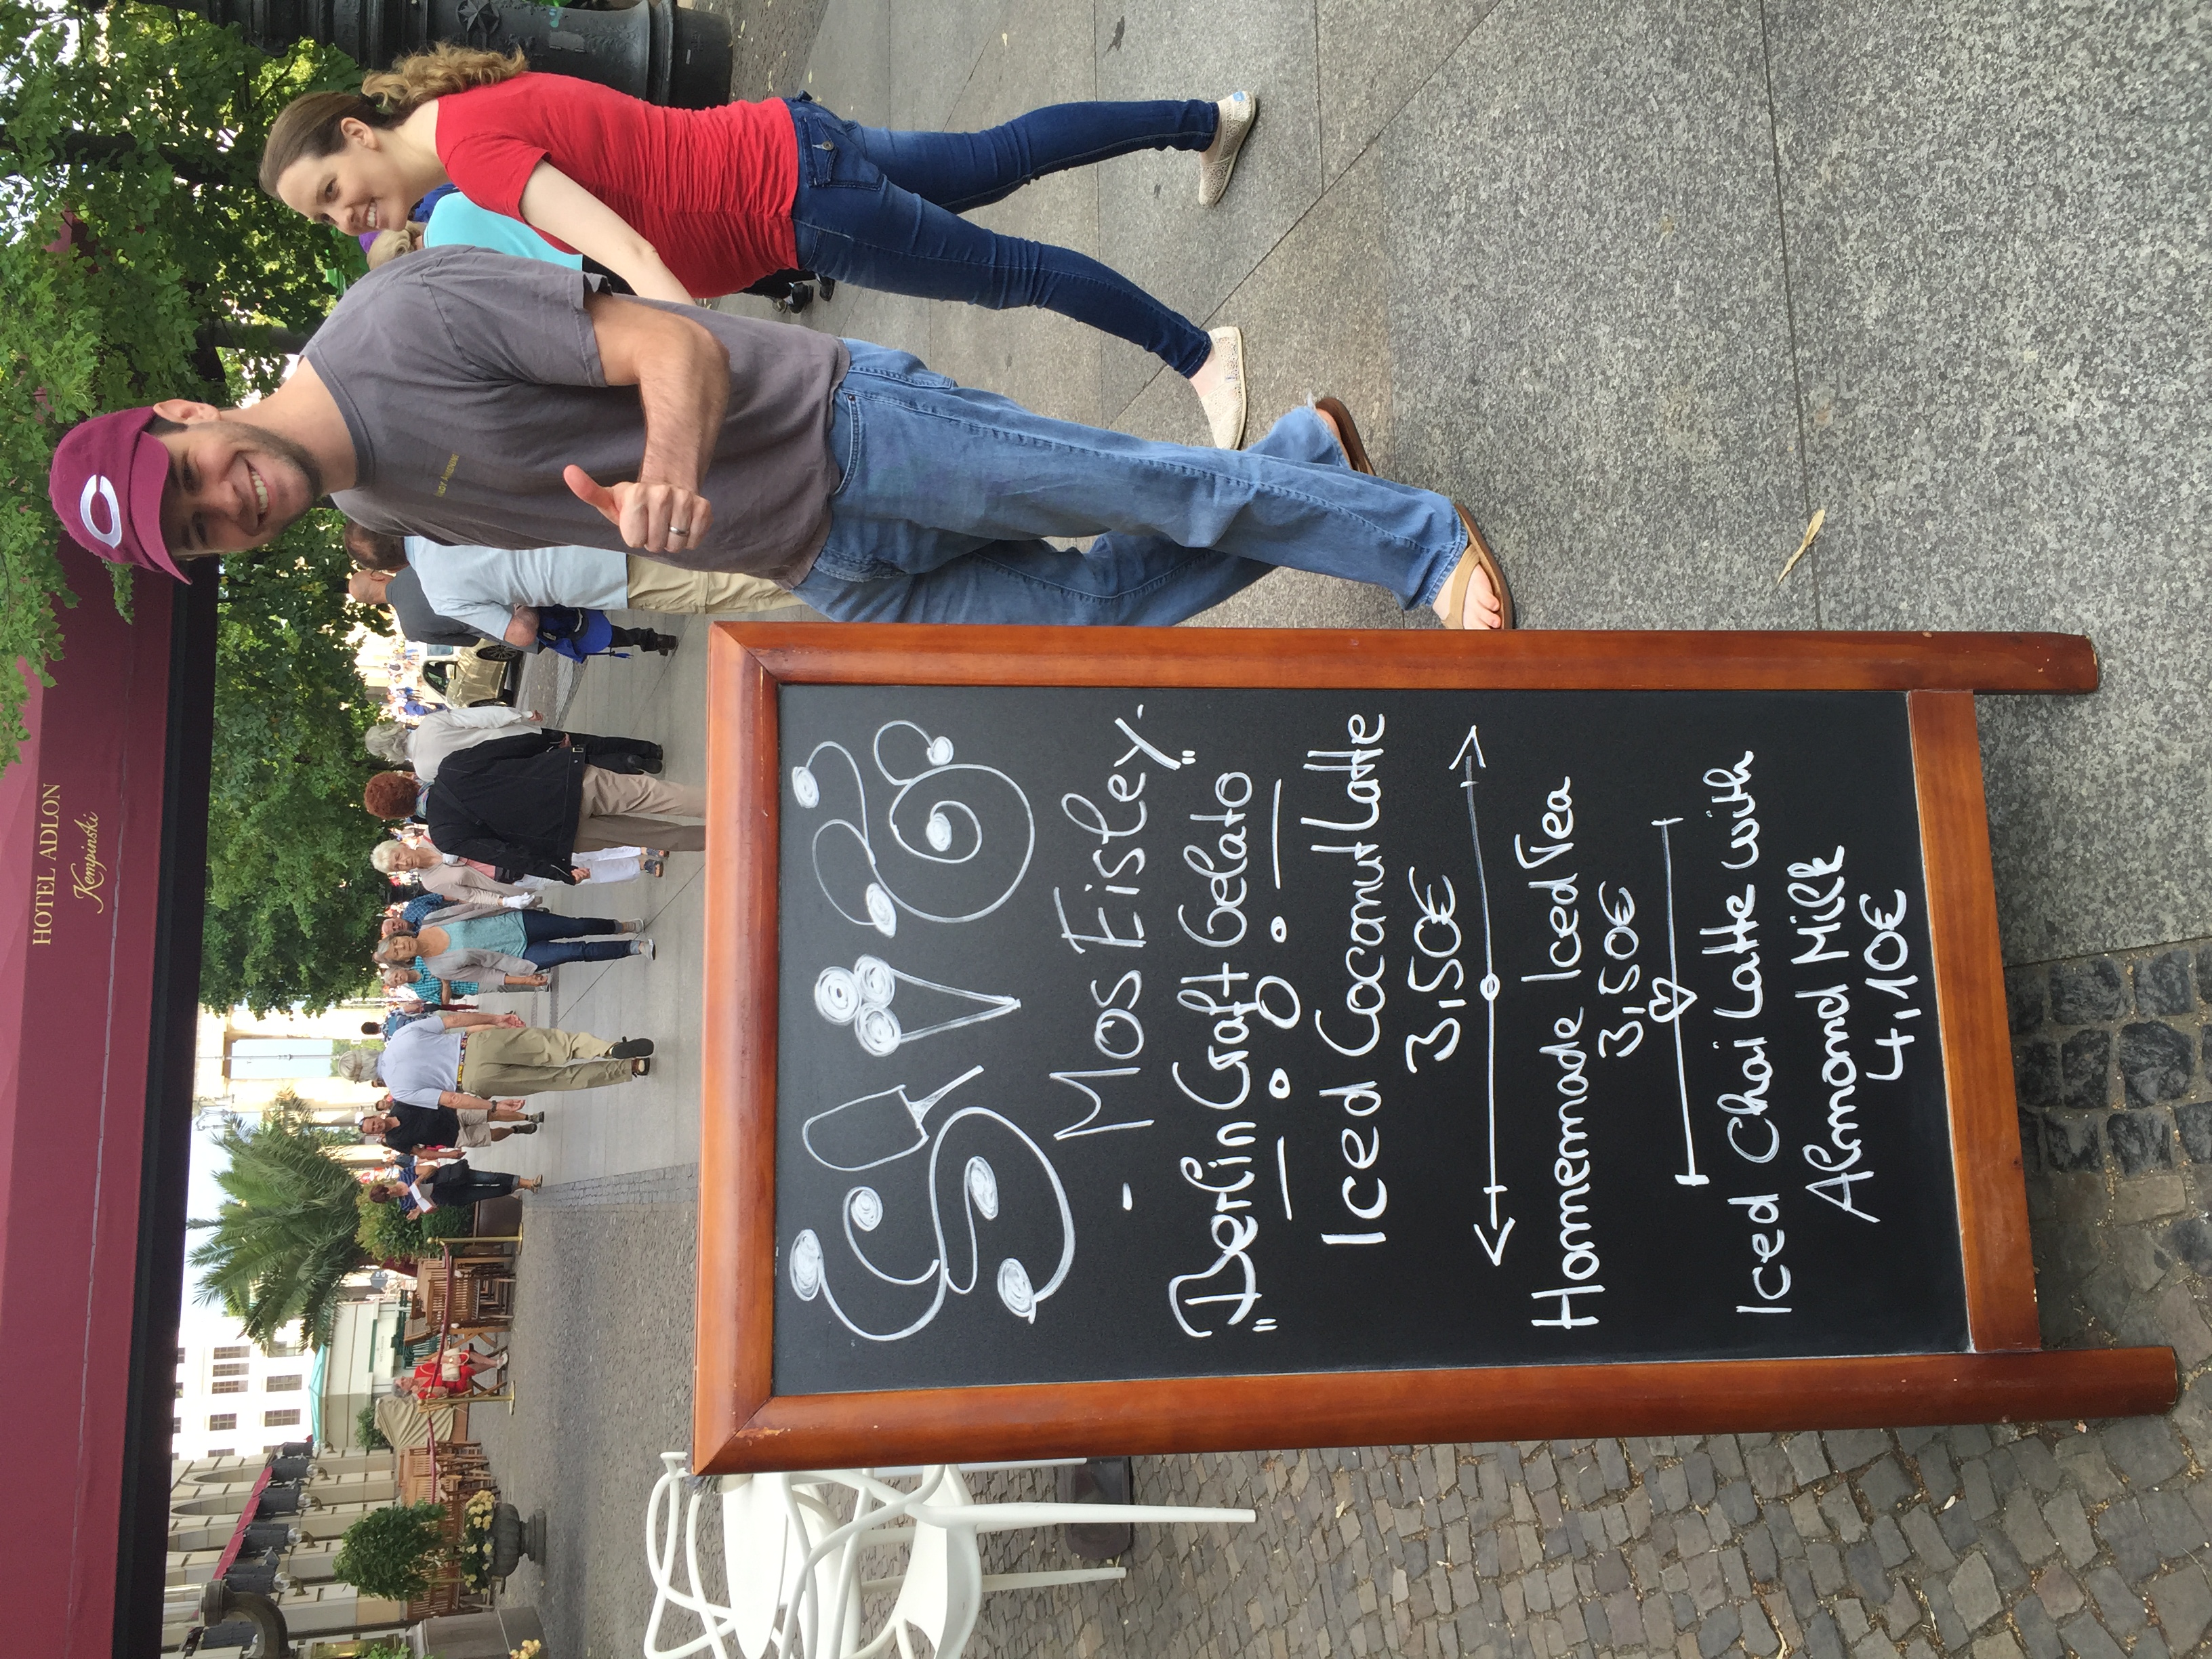 HOTEL ADLON
Kempinski
C
- Mos Eisley -
"Berlin Craft Gelato"
Iced Coconut Latte
3,50€
Homemade Iced Tea
3,50€
Iced Chai Latte with
Almond Milk
4,10€